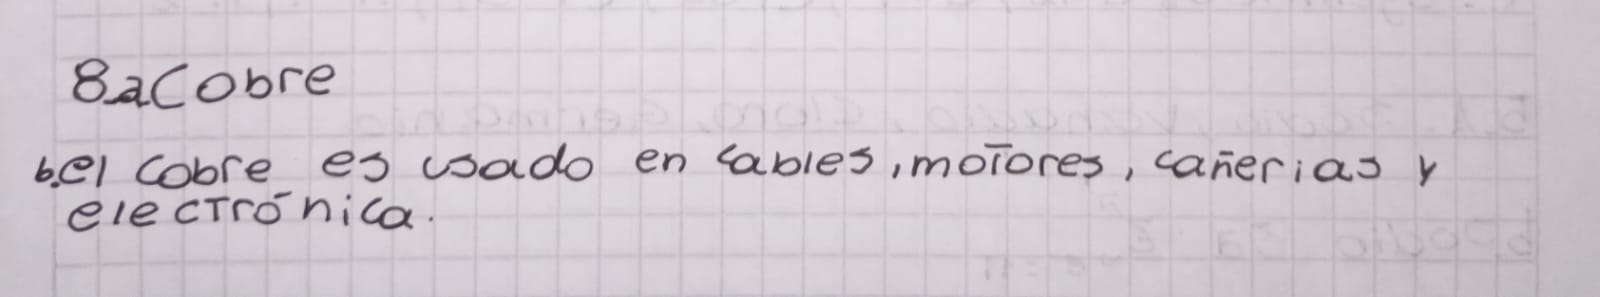 8.a Cobre
b.el cobre es usado en cables, motores, cañerias y
electrónica.